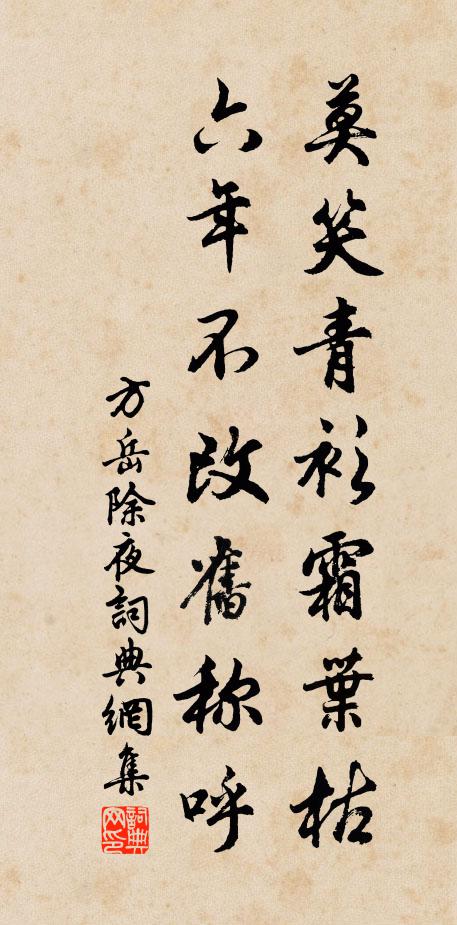 莫笑青衫霜葉枯
六年不改舊称呼
方岳除夜詞典網集
詞典網印